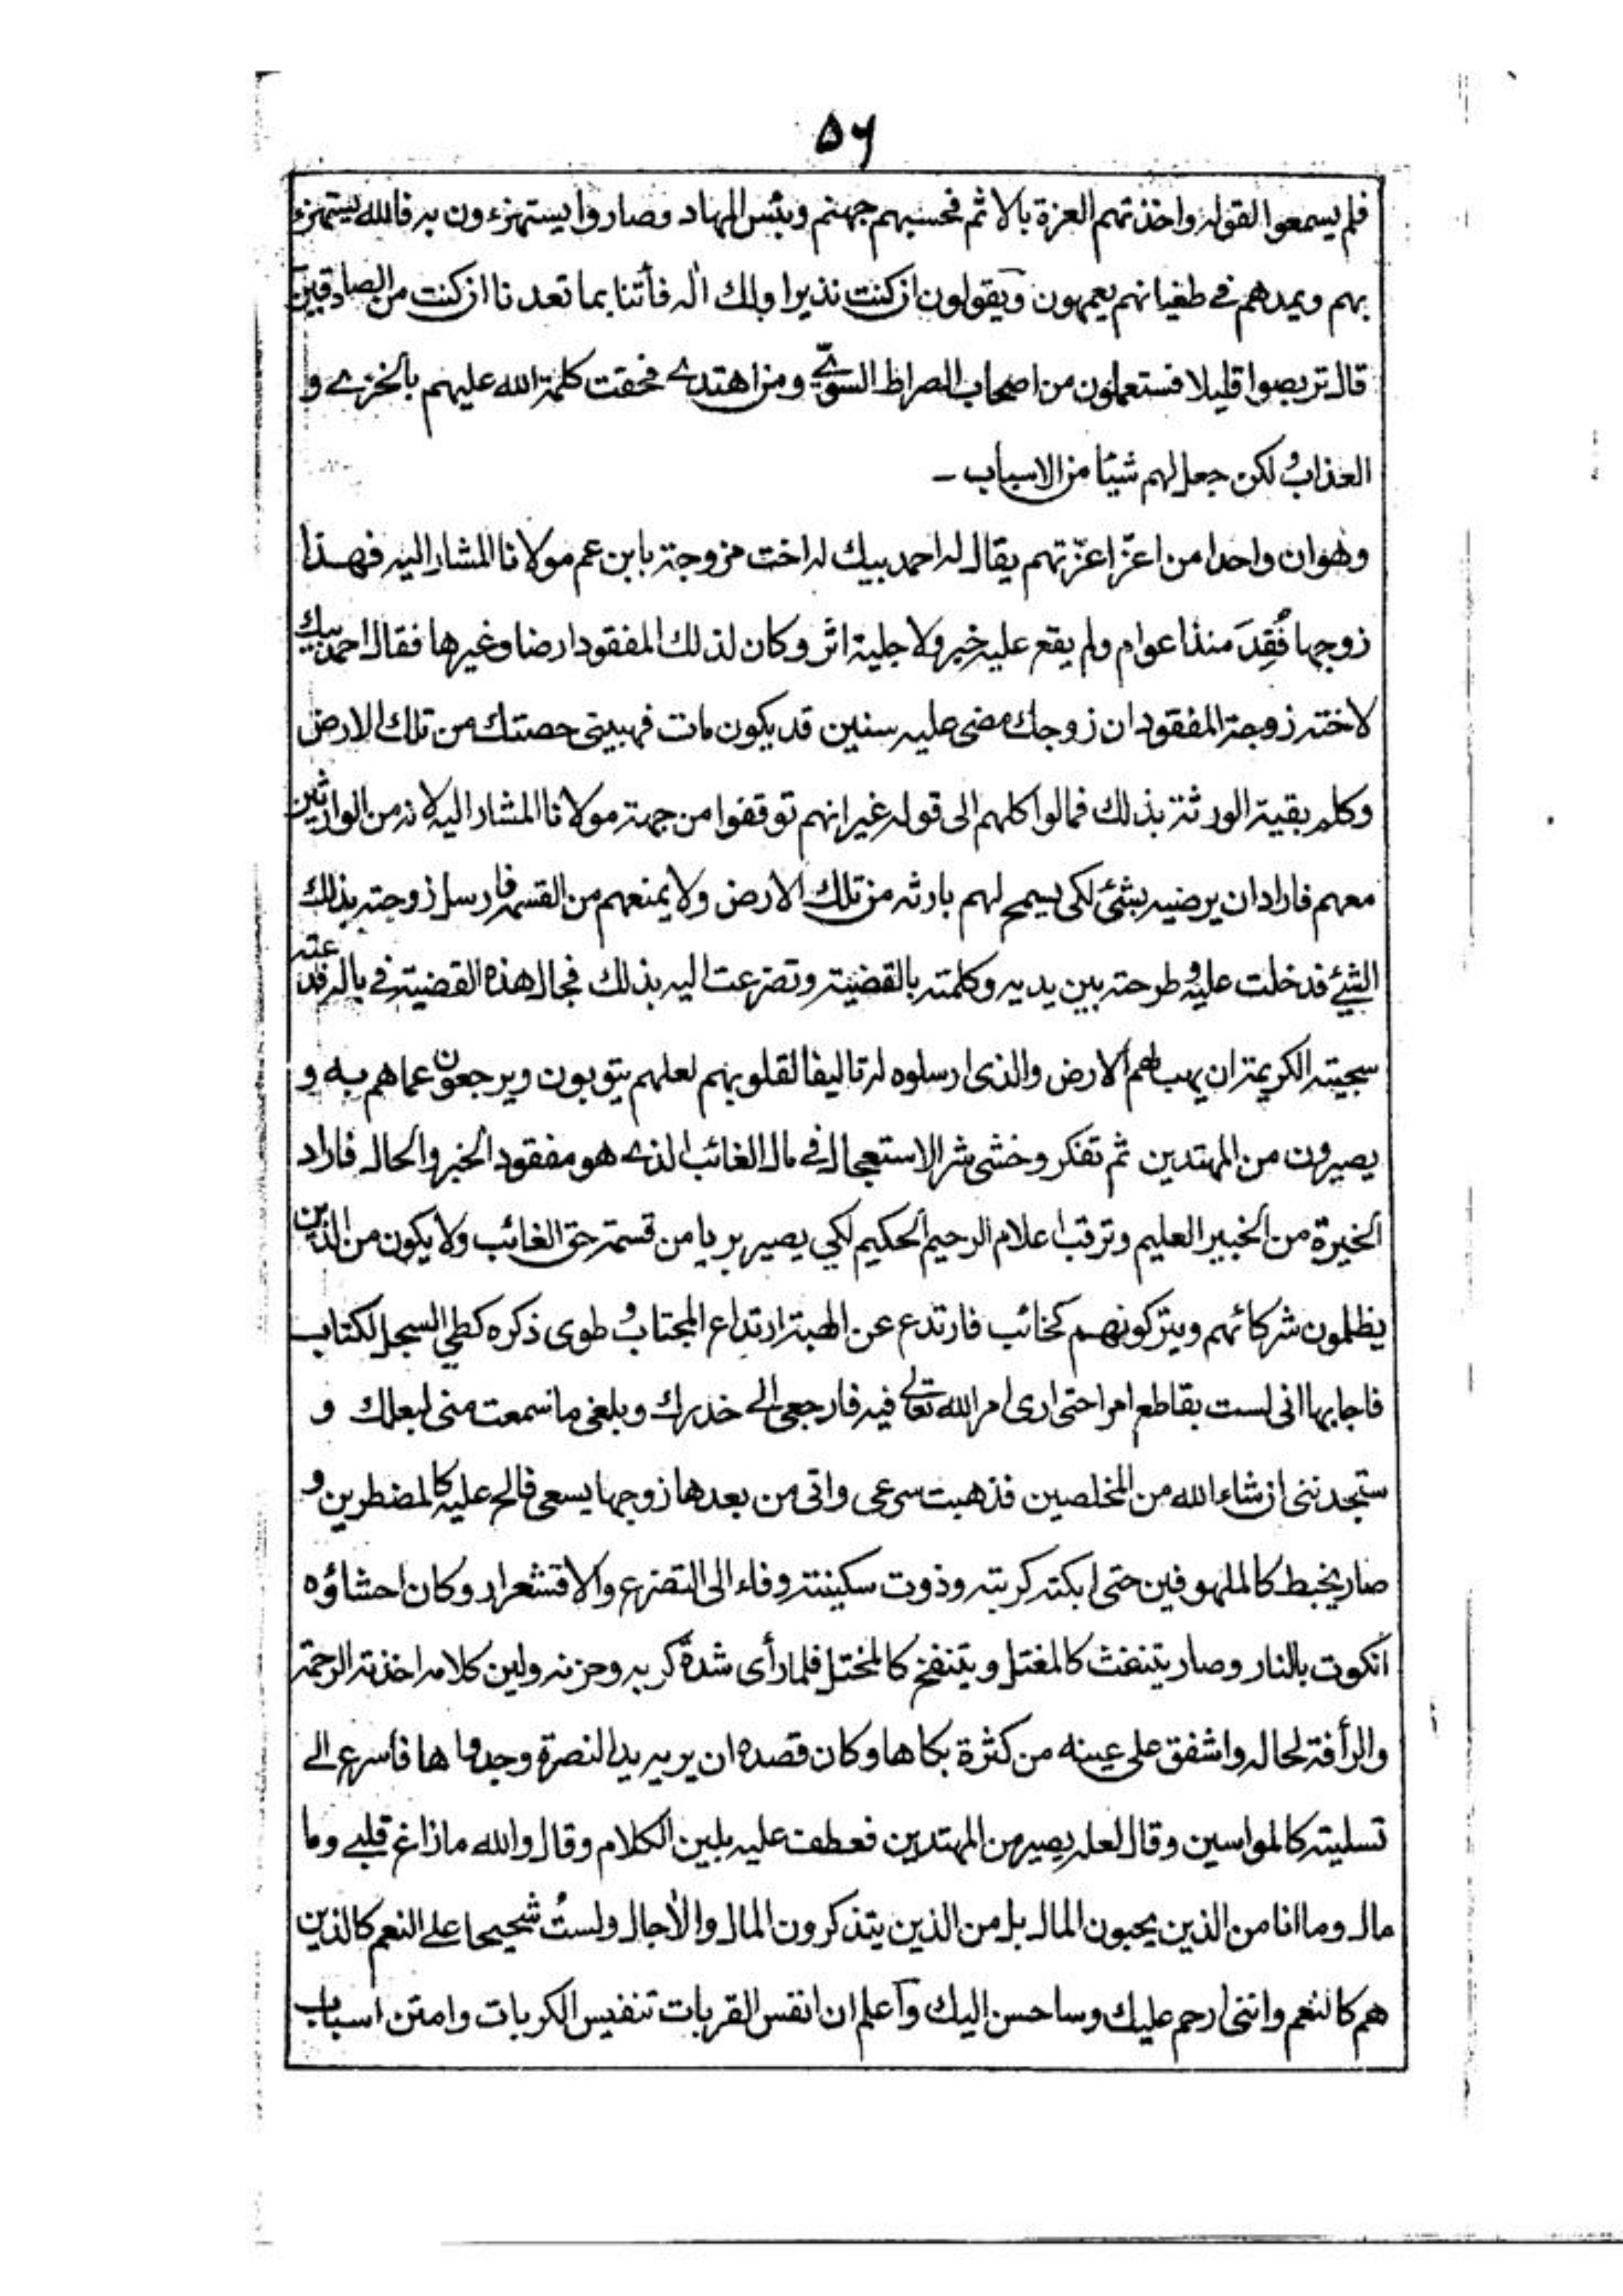 ۵۶
فلم يسمعوا لقوله واخذتهم العزة بالاثم فحسبهم جهنم وبئس المهاد وصاروا يستهزءون به فالله يستهزء
بهم ويمدهم في طغيانهم يعمهون ويقولون ان كنت نذيرا ولك اله فأتنا بما تعدنا ان كنت من الصادقين
قال تربصوا قليلا فستعلمون من اصحاب الصراط السويّ ومن اهتدى فحقت كلمة الله عليهم بالخزى و
العذاب ولكن جعل لهم شيئا من الاسباب ـ
وهو ان واحدا من اعزّ اعزّتهم يقال له احمد بيك له اخت مزوجة بابن عم مولانا المشار اليه فهذا
زوجها فُقِدَ منذ اعوام ولم يقع عليه خبر ولا جلية اثر وكان لذلك المفقود ارضا وغيرها فقال احمد بيك
لاخته زوجة المفقود ان زوجك مضى عليه سنين قد يكون مات فهبينى حصتك من تلك الارض
وكلم بقية الورثة بذلك فمالوا كلهم الى قوله غير انهم توقفوا من جهة مولانا المشار اليه لانه من الوارثين
معهم فاراد ان يرضيه بشئ لكى يسمح لهم بارثه من تلك الارض ولا يمنعهم من القسمة فارسل زوجته بذلك
الشئ فدخلت عليه وطرحته بين يديه وكلمته بالقضية وتضرعت اليه بذلك فجال هذه القضية في باله فدعته
سجيته الكريمة ان يهب لهم الارض والذى ارسلوه له تاليفا لقلوبهم لعلهم يتوبون ويرجعون عما هم به و
يصيرون من المهتدين ثم تفكر وخشى شر الاستعجال في مال الغائب الذى هو مفقود الخبر والحال فاراد
الخيرة من الخبير العليم وترقب اعلام الرحيم الحكيم لكي يصير بريا من قسمة حق الغائب ولا يكون من الذين
يظلمون شركائهم ويتركونهم كخائب فارتدع عن الهبة ارتداع المجتاب وطوى ذكره كطي السجل لكتاب
فاجابها انى لست بقاطع امرا حتى ارى امر الله تعالى فيه فارجعى الى خدرك وبلغى ما سمعت منى لبعلك و
ستجدننى ان شاء الله من المخلصين فذهبت سرعى واتى من بعدها زوجها يسعى فالح عليه كالمضطرين و
صار يخبط كالملهوفين حتى ابكته كربته وذوت سكينته وفاء الى التضرع والاقشعرار وكان احشاؤه
انكوت بالنار وصار يتنفث كالمغتل ويتنفخ كالمختل فلما رأى شدة كربه وحزنه ولين كلامه اخذته الرحمة
والرأفة لحاله واشفق على عينه من كثرة بكاها وكان قصده ان يريه يد النصرة وجدواها فاسرع الى
تسليته كالمواسين وقال لعله يصير من المهتدين فعطف عليه بلين الكلام وقال والله ما زاغ قلبي وما
مال وما انا من الذين يحبون المال بل من الذين يتذكرون المال والاٰجال ولستُ شحيحا على النعم كالذين
هم كالنعم واننى ارحم عليك وساحسن اليك واعلم ان انفس القربات تنفيس الكربات وامتن اسباب